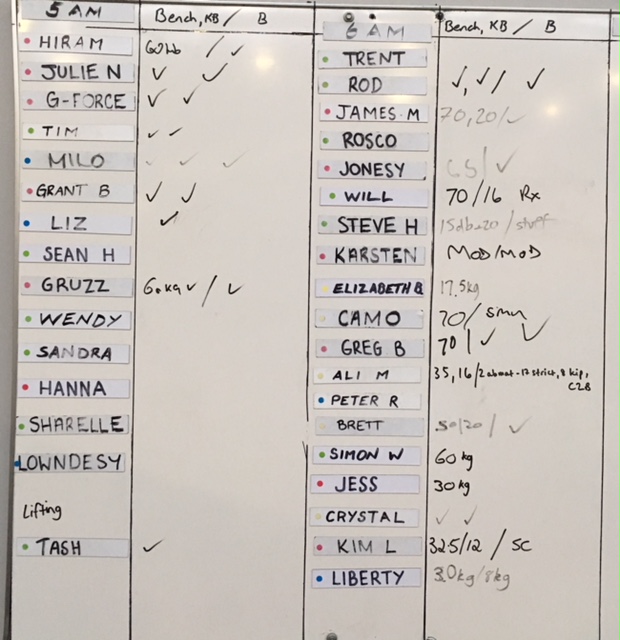 5 AM Bench, KB / B
HIRAM 60 / ✓
JULIEN ✓ ✓
G-FORCE ✓ ✓
TIM ✓ ✓
MILO ✓ ✓ ✓
GRANT B ✓ ✓
LIZ ✓
SEAN H
GRUZZ 60kg ✓ / ✓
WENDY
SANDRA
HANNA
SHARELLE
LOWNDESY
Lifting
TASH ✓
6 AM Bench, KB / B
TRENT
ROD ✓, ✓ / ✓
JAMES M 70, 20 / ✓
ROSCO
JONESY 65 / ✓
WILL 70/16 Rx
STEVE H
KARSTEN MOD/MOD
ELIZABETH B 17.5kg
CAMO 70 / 5min
GREG B 70 | ✓ ✓
ALI M 35, 16/2 - 12 strict, 8 kip,
C2B
PETER R
BRETT 50/20 / ✓
SIMON W 60 kg
JESS 30 kg
CRYSTAL ✓ ✓
KIM L 32.5/12 / SC
LIBERTY 30kg/8kg